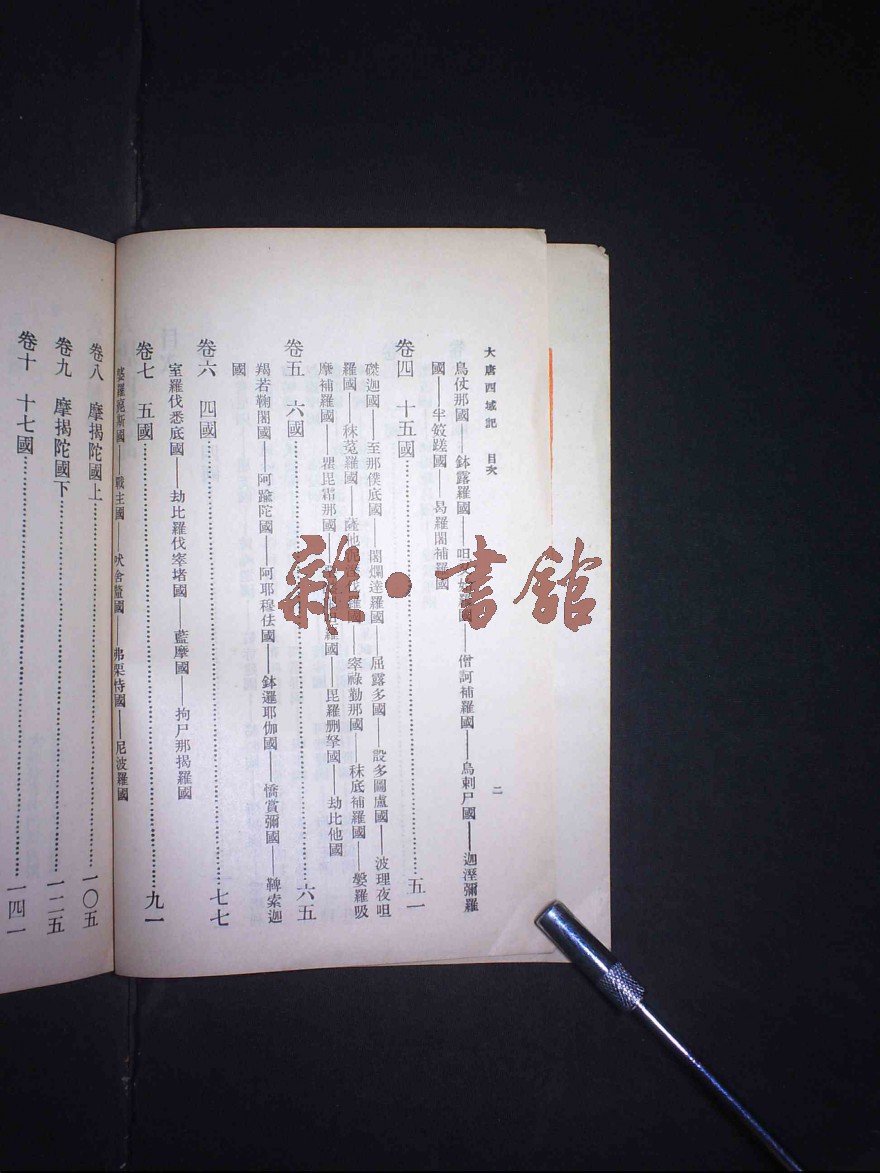 大唐西域記 目次
二
烏仗那國——鉢露羅國——呾 羅國——僧訶補羅國——烏剌尸國——迦溼彌羅
國——半笯蹉國——曷羅闍補羅國
卷四 十五國……五一
磔迦國——至那僕底國——闍爛達羅國——屈露多國——設多圖盧國——波理夜呾
羅國——秣菟羅國——薩他泥 伐羅國——窣祿勤那國——秣底補羅國——婆羅吸
摩補羅國——瞿毘霜那國—— 羅國——毘羅刪拏國——劫比他國
卷五 六國……六五
羯若鞠闍國——阿踰陀國——阿耶穆佉國——鉢邏耶伽國——憍賞彌國——鞞索迦
國
卷六 四國……七七
室羅伐悉底國——劫比羅伐窣堵國——藍摩國——拘尸那揭羅國
卷七 五國……九一
婆羅痆斯國——戰主國——吠舍釐國——弗栗恃國——尼波羅國
卷八 摩揭陀國上……一〇五
卷九 摩揭陀國下……一二五
卷十 十七國……一四一
雜·書館